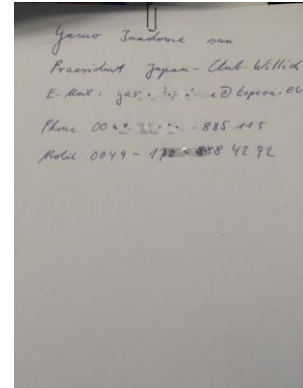 Yasuo Inadome san
Praesident Japan-Club Willich
E-Mail: yas @topcon.eu
Phone 00 -885 115
Mobil 0049-1 88 42 92